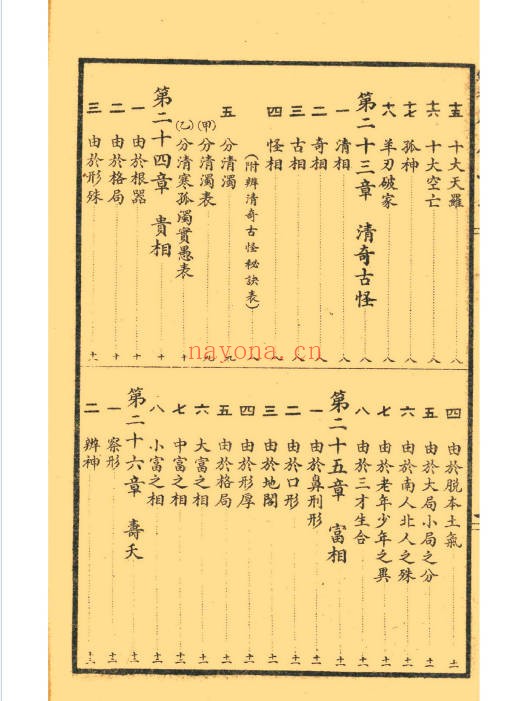 十五 十大天羅 八
十六 十大空亡 八
十七 孤神 八
十八 羊刃破家 八
第二十三章 清奇古怪
一 清相 八
二 奇相 八
三 古相 八
四 怪相 八
（附辨清奇古怪秘訣表） 八
五 分清濁 九
(甲) 分清濁表 九
(乙) 分清寒孤濁實愚表 十
第二十四章 貴相
一 由於根器 十
二 由於格局 十
三 由於形殊 十
四 由於脫本土氣 十一
五 由於大局小局之分 十一
六 由於南人北人之殊 十一
七 由於老年少年之異 十一
八 由於三才生合 十一
第二十五章 富相
一 由於鼻形 十一
二 由於口形 十一
三 由於地閣 十一
四 由於形厚 十一
五 由於格局 十一
六 大富之相 十一
七 中富之相 十一
八 小富之相 十一
第二十六章 壽夭
一 察形
二 辨神
nayona.cn